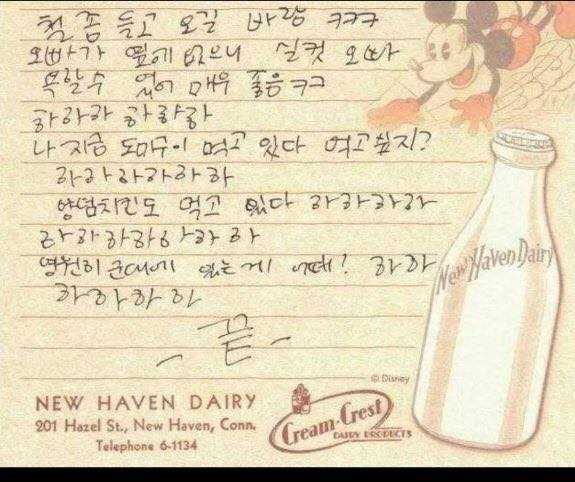 철 좀 들고 오길 바람 ㅋㅋㅋ
오빠가 옆에 없으니 실컷 오빠
욕할수 있어 매우 좋음 ㅋㅋ
하하하 하하하
나 지금 도마구이 먹고 있다 먹고싶지?
하하하하하하
양념치킨도 먹고 있다 하하하하
하하하하하하하하
영원히 군대에 있는게 어때! 하하
하하하하
- 끝 -
New Haven Dairy
© Disney
NEW HAVEN DAIRY
201 Hazel St., New Haven, Conn.
Telephone 6-1134
Cream-Crest
DAIRY PRODUCTS